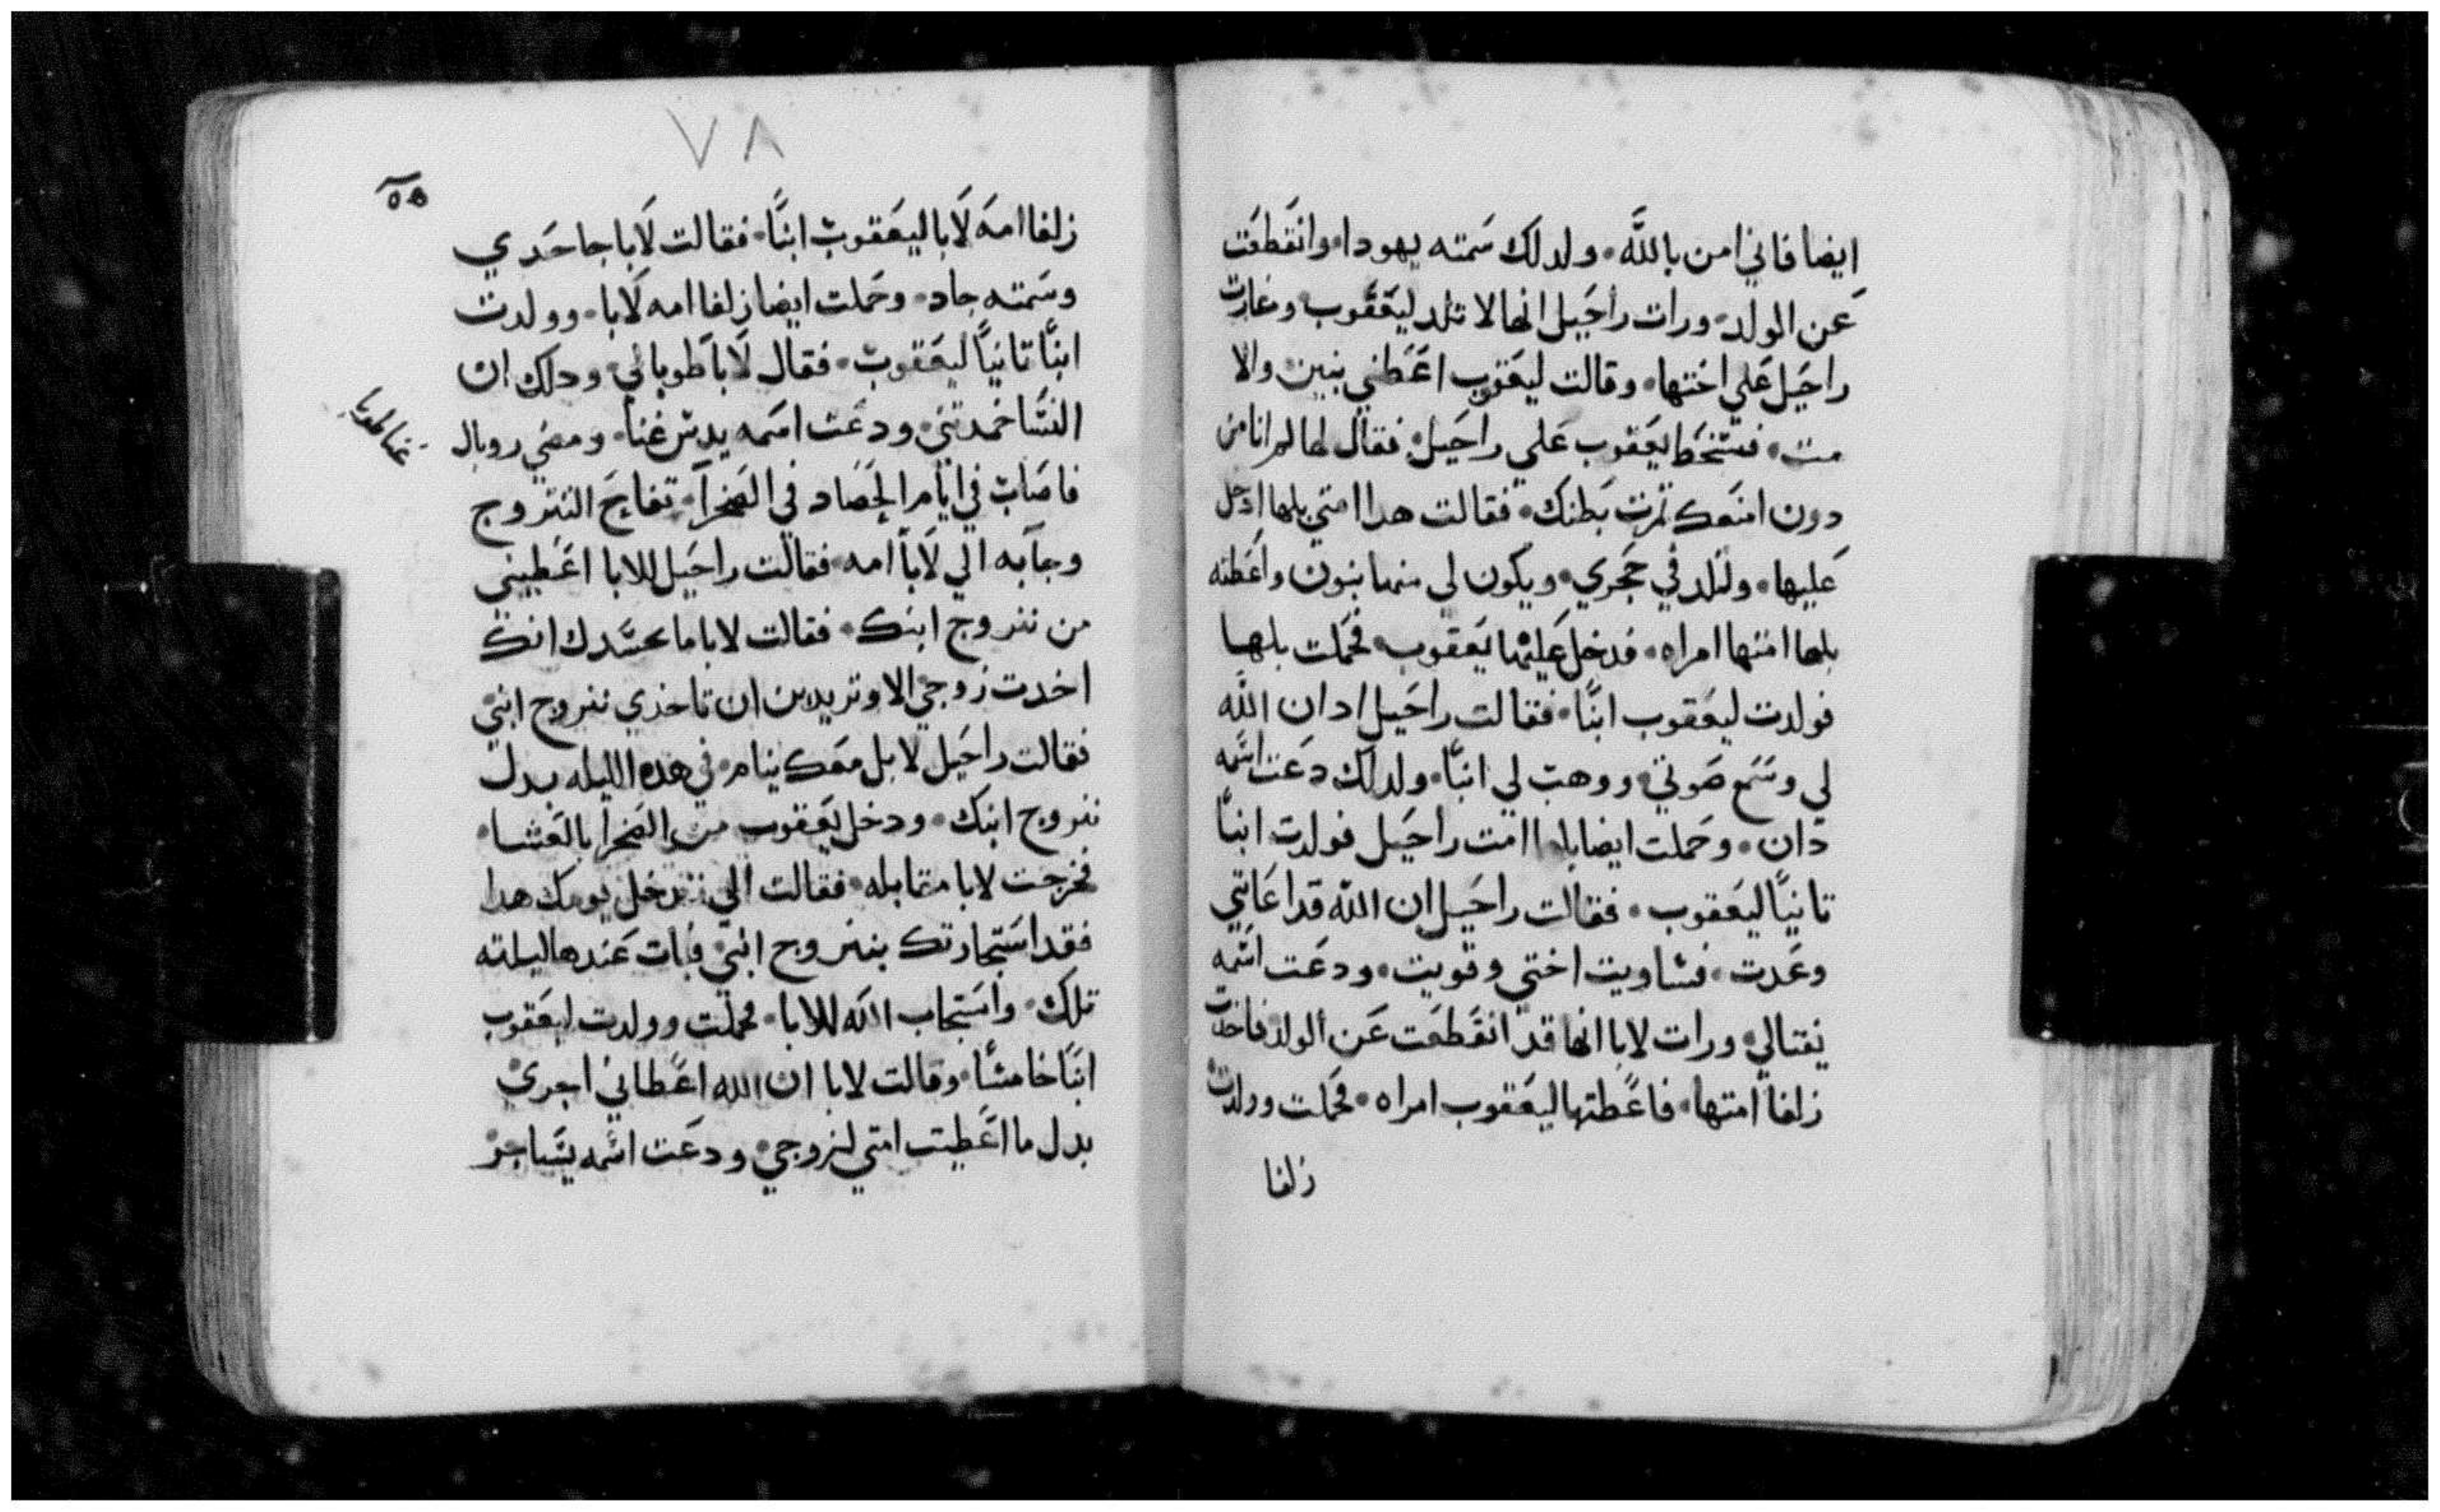 ايضا فاني امن بالله ٠ ولدلك سمته يهودا ٠ وانقطعت
عن الولد ٠ ورات راحيل انها لا تلد ليعقوب وغارت
راحيل علي اختها ٠ وقالت ليعقوب اعطني بنين والا
مت ٠ فسخط يعقوب علي راحيل ٠ فقال لها لم انا من
دون امنعك تمرت بطنك ٠ فقالت هدا امتي بلها ادخل
عليها ٠ ولتلد في حجري ٠ ويكون لي منها بنون واعطته
بلها امتها امراه ٠ فدخل عليها يعقوب ٠ فحملت بلها
فولدت ليعقوب ابنًا ٠ فقالت راحيل ادان الله
لي وسمع صوتي ٠ ووهب لي ابنًا ٠ ولدلك دعت اسمه
دان ٠ وحملت ايضا بلها امت راحيل فولدت ابنًا
تانيًا ليعقوب ٠ فقالت راحيل ان الله قد اعانني
وعدت ٠ فساويت اختي وقويت ٠ ودعت اسمه
نفتالي ٠ ورات لابا انها قد انقطعت عن الولد فاخدت
زلفا امتها ٠ فاعطتها ليعقوب امراه ٠ فحملت وولدت
زلفا
٧٨
٥٥
زلفا امه لابا ليعقوب ابنًا ٠ فقالت لابا جا حدي
وسمته جاد ٠ وحملت ايضا زلفا امه لابا ٠ وولدت
ابنًا تانيًا ليعقوب ٠ فقال لابا طوباني ٠ ودلك ان
النسا ٠ ودعت اسمه ٠ ومضي روبال
فاصاب في ايام الحصاد في الصحرا ٠ تفاح التتروج
وجابه الي لابا امه ٠ فقالت راحيل للابا اعطيني
من تتروج ابنك ٠ فقالت لابا ما بحسدك انك
اخدت زوجي الا وتريدين ان تاخدي تتروج ابني
فقالت راحيل لا بل معك ينام ٠ في هده الليله بدل
تتروج ابنك ٠ ودخل يعقوب من الصحرا بالعشا ٠
فخرجت لابا مقابله ٠ فقالت الي تدخل يومك هدا
فقد استجارتك بتتروج ابني ٠ فبات عندها ليلته
تلك ٠ واستجاب الله للابا ٠ فحملت وولدت ليعقوب
ابنًا خامسًا ٠ وقالت لابا ان الله اعطاني اجري
بدل ما اعطيت امتي لزوجي ٠ ودعت اسمه يساجر